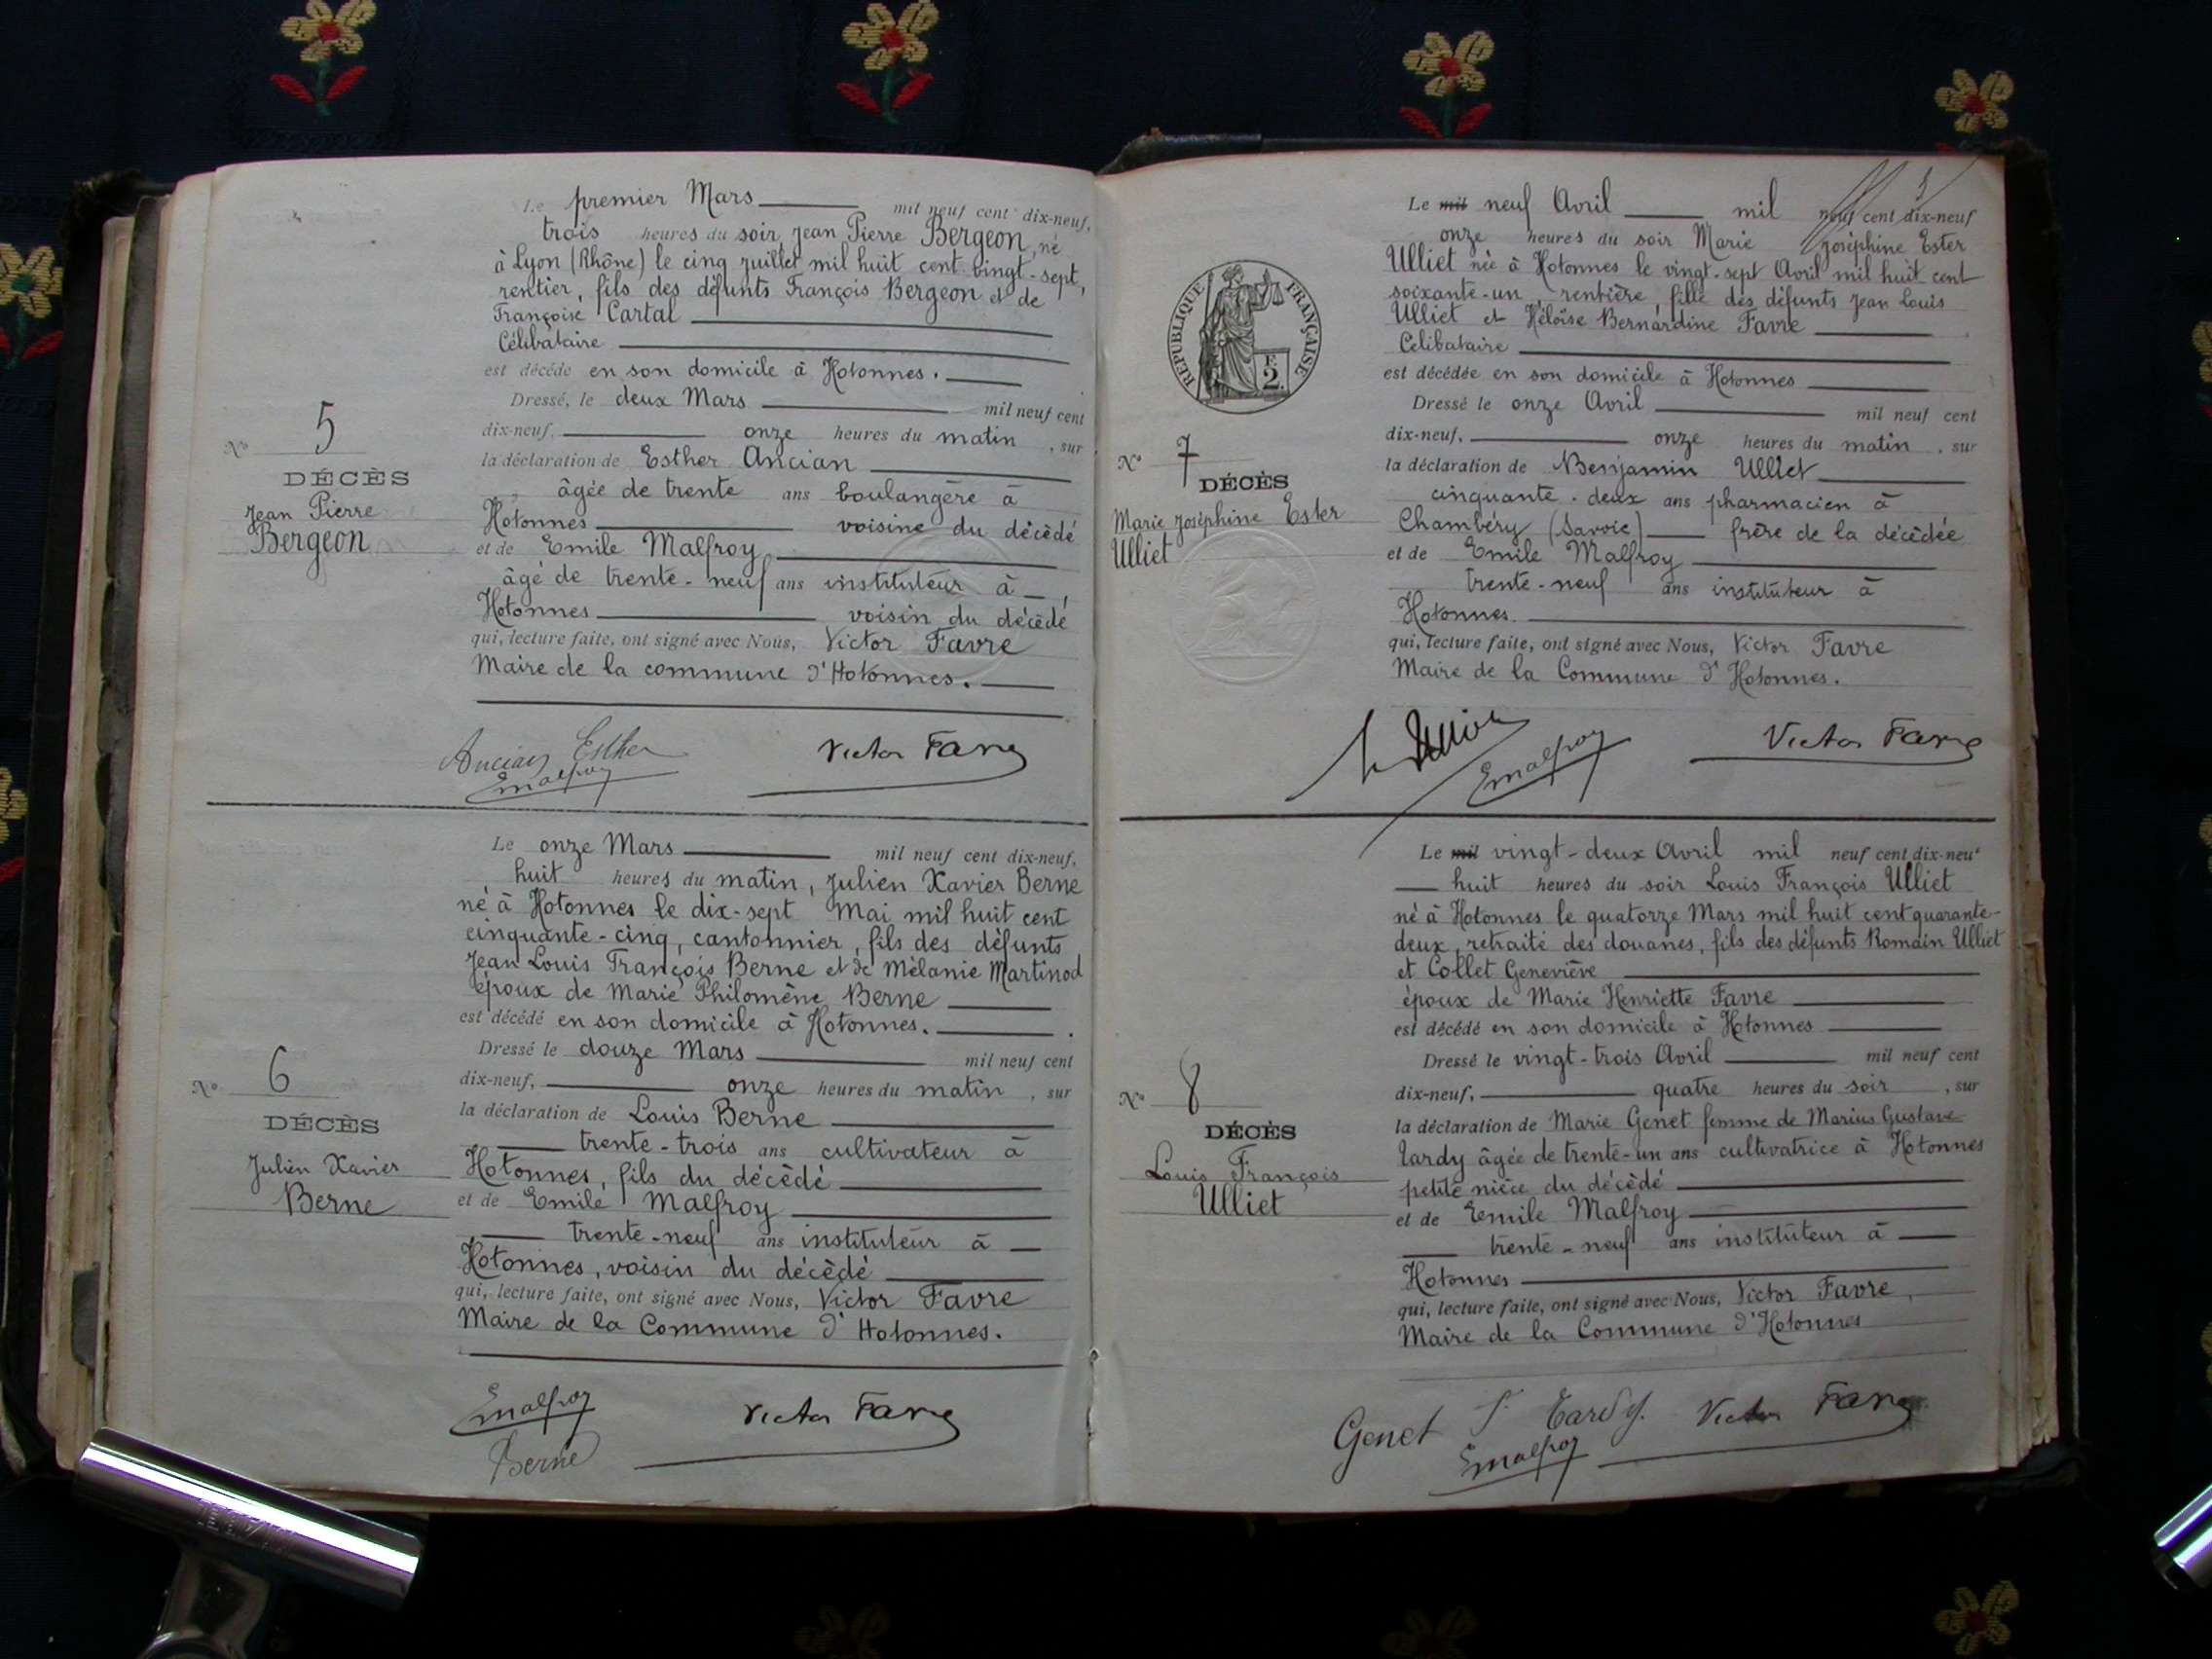 Le premier Mars mil neuf cent dix-neuf,
trois heures du soir, Jean Pierre Bergeon, né
à Lyon (Rhône) le cinq juillet mil huit cent vingt-sept,
rentier, fils des défunts François Bergeon et de
Françoise Cartal
Célibataire
est décédé en son domicile à Hotonnes.
Dressé, le deux Mars mil neuf cent
dix-neuf, onze heures du matin, sur
la déclaration de Esther Ancian
âgée de trente ans boulangère à
Hotonnes voisine du décédé
et de Emile Malfroy
âgé de trente-neuf ans instituteur à
Hotonnes voisin du décédé
qui, lecture faite, ont signé avec Nous, Victor Favre
Maire de la commune d'Hotonnes.
No 5
DÉCÈS
Jean Pierre
Bergeon
Ancian Esther
Emalfroy
Victor Favre
Le onze Mars mil neuf cent dix-neuf,
huit heures du matin, Julien Xavier Berne
né à Hotonnes le dix-sept Mai mil huit cent
cinquante-cinq, cantonnier, fils des défunts
Jean Louis François Berne et de Mélanie Martinod
époux de Marie Philomène Berne
est décédé en son domicile à Hotonnes.
Dressé le douze Mars mil neuf cent
dix-neuf, onze heures du matin, sur
la déclaration de Louis Berne
trente-trois ans cultivateur à
Hotonnes, fils du décédé
et de Emile Malfroy
trente-neuf ans instituteur à
Hotonnes, voisin du décédé
qui, lecture faite, ont signé avec Nous, Victor Favre
Maire de la Commune d'Hotonnes.
No 6
DÉCÈS
Julien Xavier
Berne
Emalfroy
Berne
Victor Favre
Le mil neuf Avril mil neuf cent dix-neuf
onze heures du soir Marie Joséphine Ester
Ulliet née à Hotonnes le vingt-sept Avril mil huit cent
soixante-un, rentière, fille des défunts Jean Louis
Ulliet et Héloïse Bernardine Favre
Celibataire
est décédée en son domicile à Hotonnes
Dressé le onze Avril mil neuf cent
dix-neuf, onze heures du matin, sur
la déclaration de Benjamin Ulliet
cinquante-deux ans pharmacien à
Chambéry (Savoie) frère de la décédée
et de Emile Malfroy
trente-neuf ans instituteur à
Hotonnes.
qui, lecture faite, ont signé avec Nous, Victor Favre
Maire de la Commune d'Hotonnes.
RÉPUBLIQUE FRANÇAISE
F.
2.
No 7
DÉCÈS
Marie Joséphine Ester
Ulliet
Emalfroy
Victor Favre
Le mil vingt-deux Avril mil neuf cent dix-neuf
huit heures du soir Louis François Ulliet
né à Hotonnes le quatorze Mars mil huit cent quarante-
deux, retraité des douanes, fils des défunts Romain Ulliet
et Collet Geneviève
époux de Marie Henriette Favre
est décédé en son domicile à Hotonnes
Dressé le vingt-trois Avril mil neuf cent
dix-neuf, quatre heures du soir, sur
la déclaration de Marie Genet femme de Marius Gustave
Tardy âgée de trente-un ans cultivatrice à Hotonnes
petite nièce du décédé
et de Emile Malfroy
trente-neuf ans instituteur à
Hotonnes
qui, lecture faite, ont signé avec Nous, Victor Favre,
Maire de la Commune d'Hotonnes
No 8
DÉCÈS
Louis François
Ulliet
Genet f. Tardy.
Emalfroy
Victor Favre